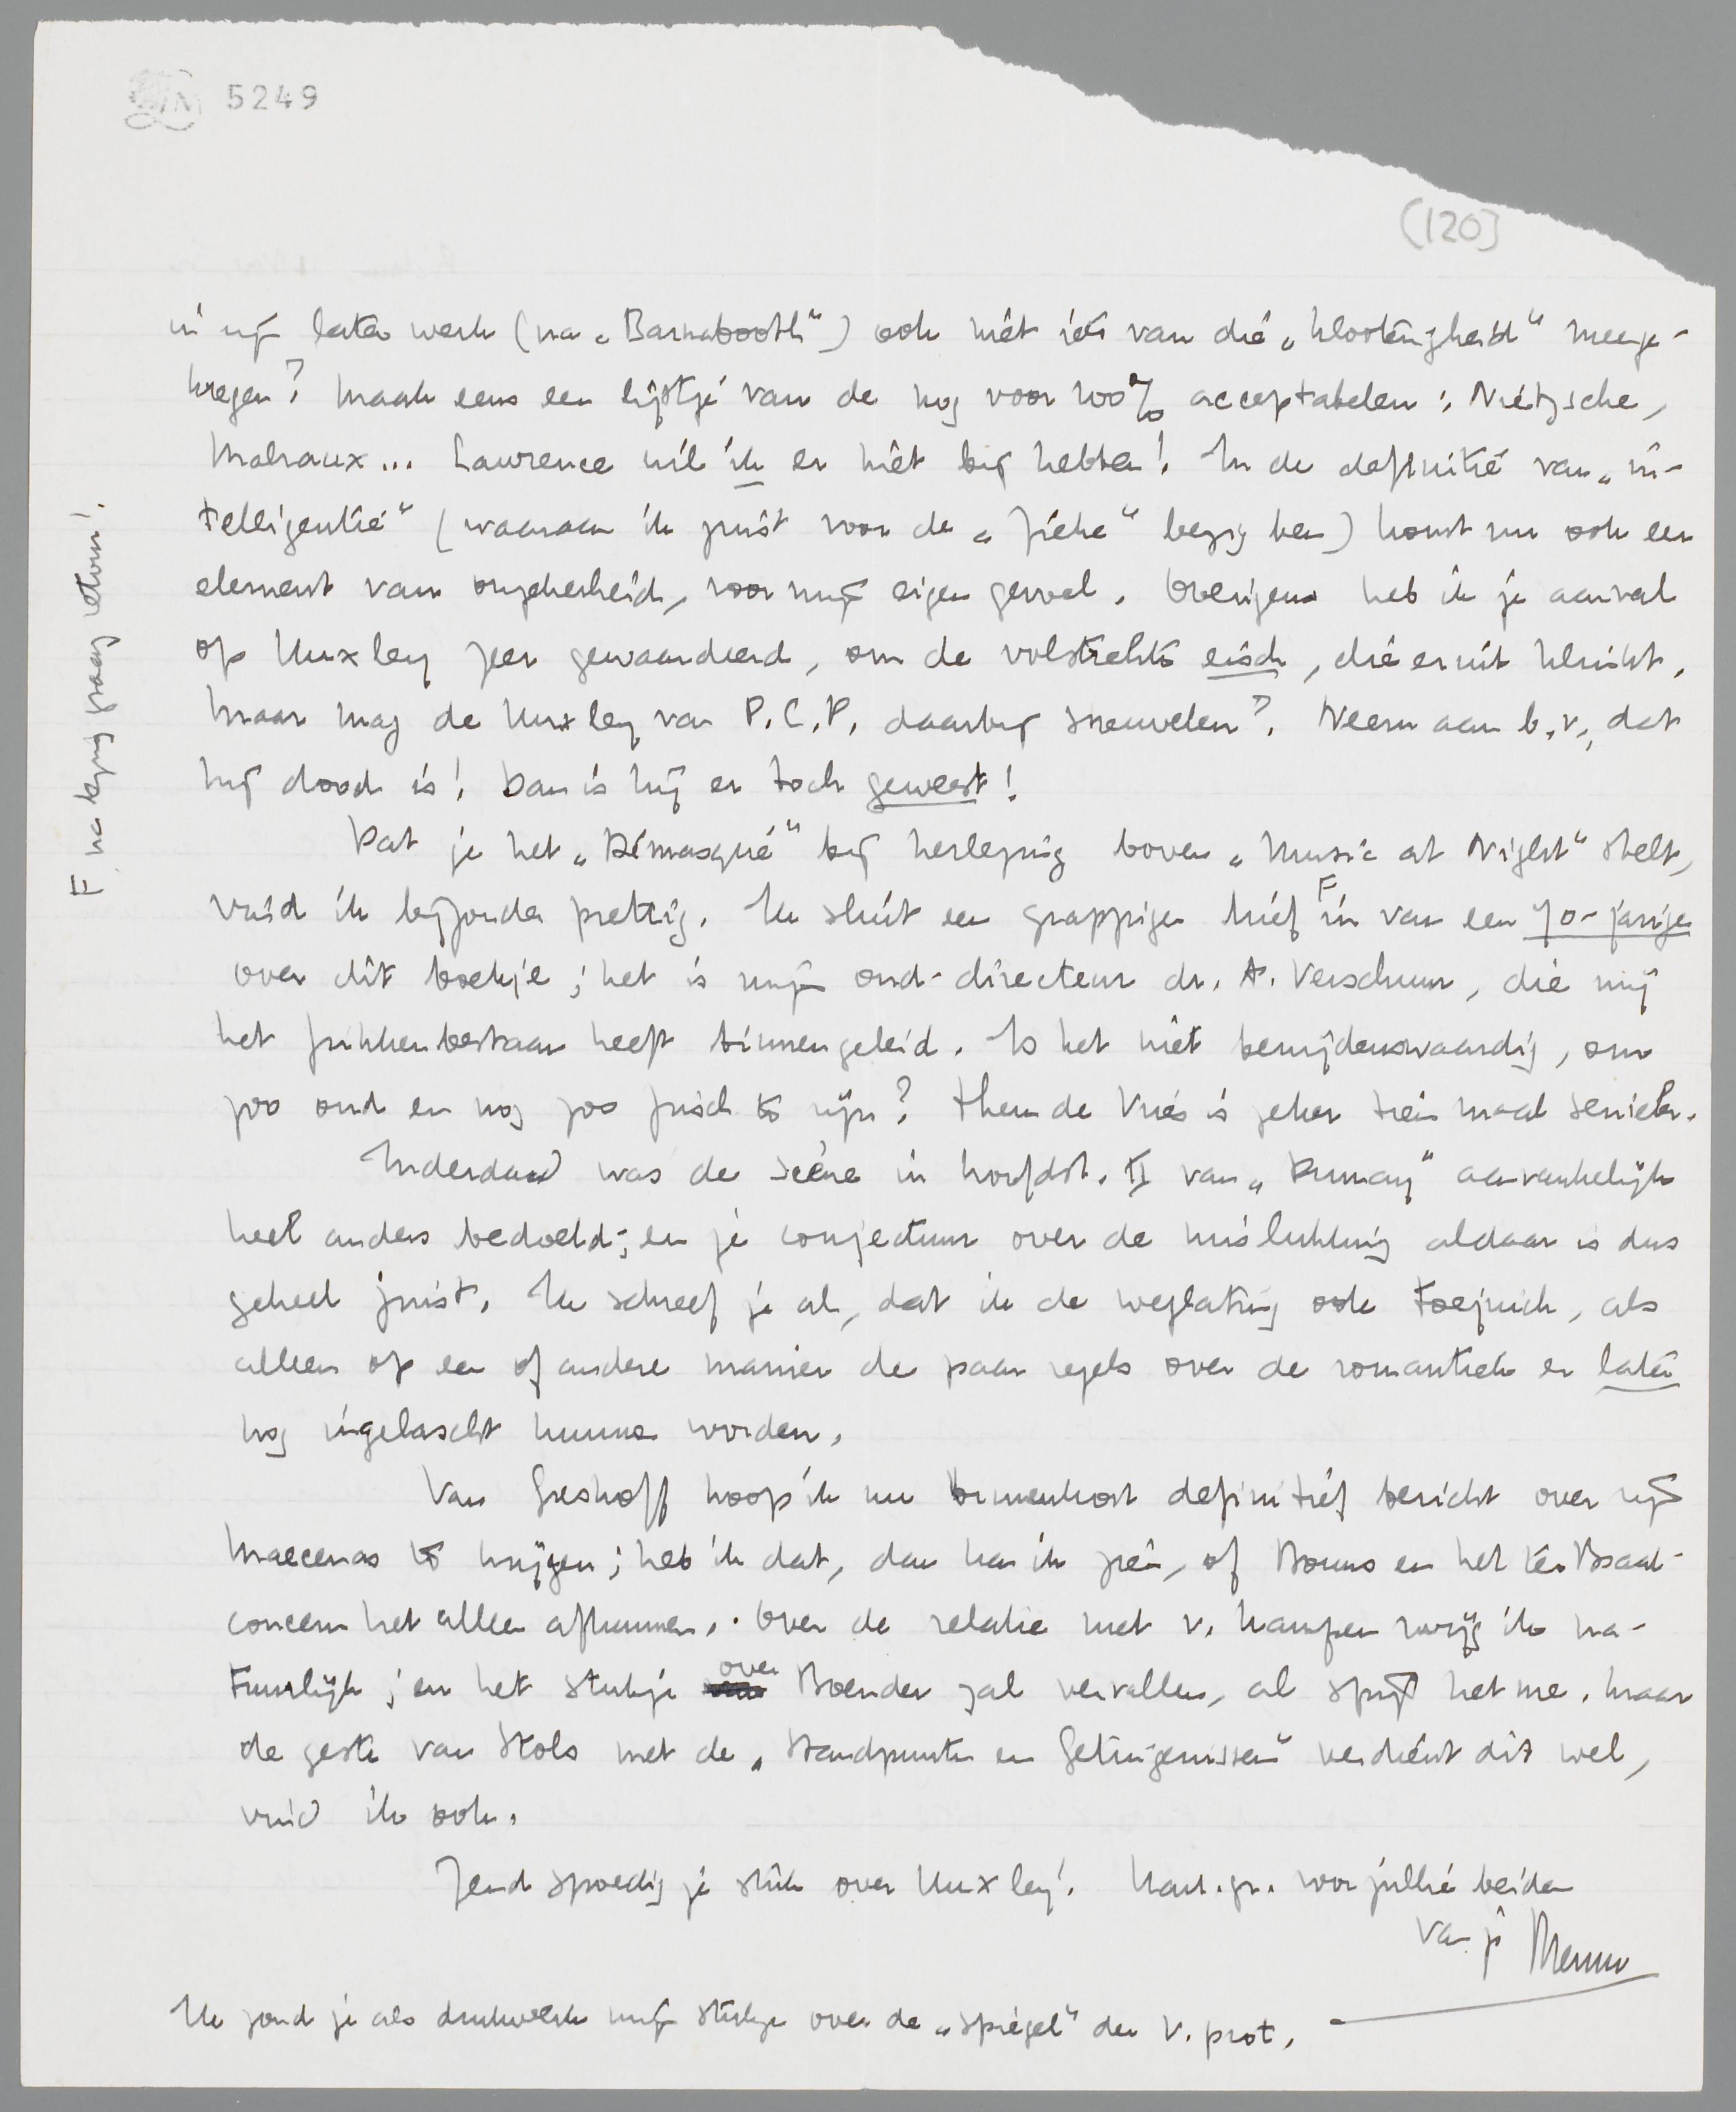 5249
(120)
in zijn later werk (na „Barnabooth") ook niet iets van die „klooterigheid" meege-
kregen? Maak eens een lijstje van de nog voor 100% acceptabelen: Nietzsche,
Malraux... Lawrence wil ik er niet bij hebben! In de definitie van „in-
telligentie" (waaraan ik juist voor de „Fiche" bezig ben) komt nu ook een
element van ongekerheid, voor mijn eigen gevoel. Overigens heb ik je aanval
op Huxley zeer gewaardeerd, om de volstrekte eisch, die eruit klinkt.
Maar mag de Huxley van P.C.P. daarbij sneuvelen? Neem aan b.v., dat
hij dood is! Dan is hij er toch geweest!
Dat je het „Démasqué" bij herlezing boven „Music at Night" stelt,
vind ik bijzonder prettig. Ik sluit een grappigen brief F in van een 70-jarige
over dit boekje; het is mijn oud-directeur dr. A. Verschuur, die mij
het frikkenbestaan heeft binnengeleid. Is het niet benijdenswaardig, om
zoo oud en nog zoo frisch te zijn? Theun de Vries is zeker tien maal seniele.
Inderdaad was de scène in hoofdst. II van „Dumay" aanvankelijk
heel anders bedoeld; en je conjectuur over de mislukking aldaar is dus
geheel juist. Ik schreef je al, dat ik de weglating ook toejuich, als
alleen op een of andere manier de paar regels over de romantiek er later
nog ingelascht kunnen worden.
Van Greshoff hoop ik nu binnenkort definitief bericht over zijn
Maecenas te krijgen; heb ik dat, dan kan ik zien, of Bouws en het ter Braak-
concern het alleen afkunnen. Over de relatie met v. Kampen zwijg ik na-
tuurlijk; en het stukje over Boender zal vervallen, al spijt het me. Maar
de geste van Stols met de „Standpunten en Getuigenissen" verdient dit wel,
vind ik ook.
Zend spoedig je stuk over Huxley! Hart. gr. voor jullie beiden
van je Menno
Ik zond je als drukwerk mijn stukje over de „Spiegel" der V. prot.
F na lezing graag retour!